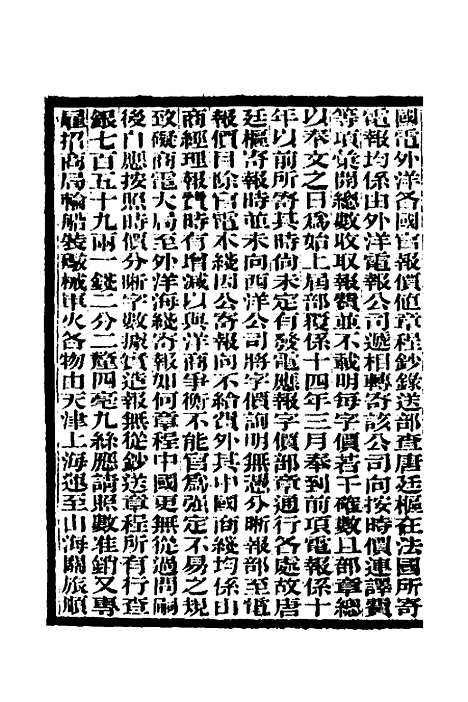 國電外洋各國官報價値章程鈔錄送部查唐廷樞在法國所寄
電報均係由外洋電報公司遞相轉寄該公司向按時價連譯費
等項彙開總數收取報費並不載明每字價若干確數且部章總
以奉文之日爲始上屆部覆係十四年三月奉到前項電報係十
年以前所寄其時尙未定有發電應報字價部章通行各處故唐
廷樞寄報時並未向西洋公司將字價詢明無憑分晰報部至電
報價目除官電不綫因公寄報向不給費外其中國商綫均係由
商經理報費時有增減以與洋商爭衡不能官爲強定不易之規
致礙商電大局至外洋海綫寄報如何章程中國更無從過問嗣
後自應按照時價分晰字數據實造報無從鈔送章程所有行查
銀七百五十九兩一錢二分二釐四亳九絲應請照數准銷又專
雇招商局輪船裝礮械軍火各物由天津上海運至山海關旅順